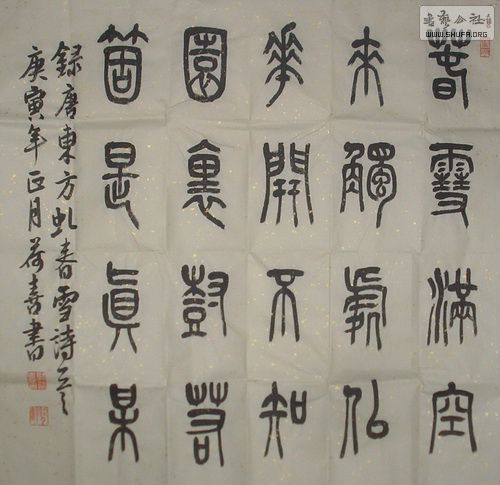 書藝公社
WWW.SHUFA.ORG
春雪滿空
來觸處佀
華開不知
園裏尌若
箇是眞某
錄唐東方虬春雪詩
庚寅年正月荷喜書